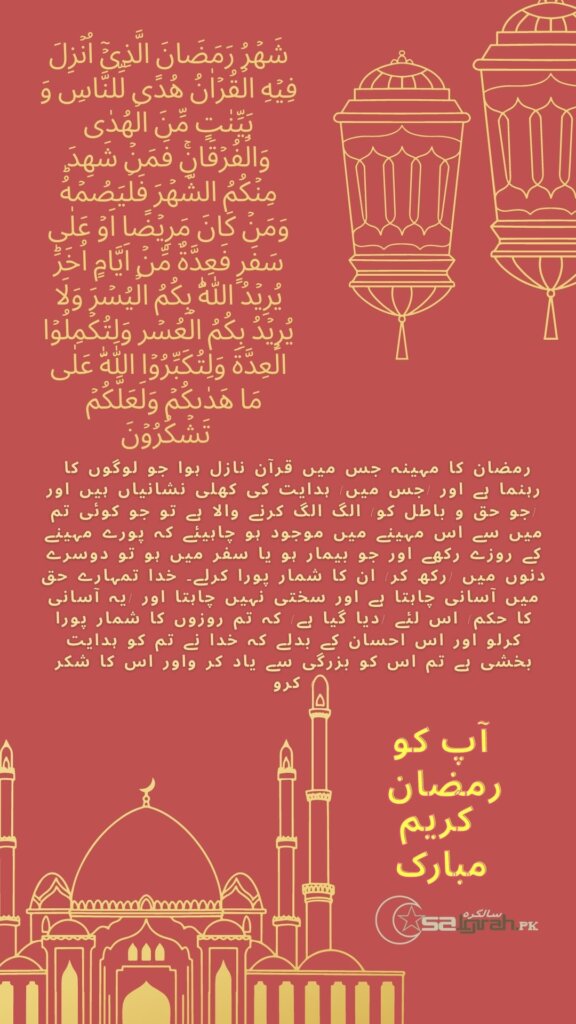 شَهۡرُ رَمَضَانَ الَّذِىۡٓ اُنۡزِلَ
فِيۡهِ الۡقُرۡاٰنُ هُدًى لِّلنَّاسِ وَ
بَيِّنٰتٍ مِّنَ الۡهُدٰى
وَالۡفُرۡقَانِۚ فَمَنۡ شَهِدَ
مِنۡكُمُ الشَّهۡرَ فَلۡيَصُمۡهُؕ
وَمَنۡ کَانَ مَرِيۡضًا اَوۡ عَلٰى
سَفَرٍ فَعِدَّةٌ مِّنۡ اَيَّامٍ اُخَرَؕ
يُرِيۡدُ اللّٰهُ بِکُمُ الۡيُسۡرَ وَلَا
يُرِيۡدُ بِکُمُ الۡعُسۡرَ وَلِتُکۡمِلُوا
الۡعِدَّةَ وَلِتُکَبِّرُوا اللّٰهَ عَلٰى
مَا هَدٰٮكُمۡ وَلَعَلَّکُمۡ
تَشۡكُرُوۡنَ
رمضان کا مہینہ جس میں قرآن نازل ہوا جو لوگوں کا
رہنما ہے اور /جس میں/ ہدایت کی کھلی نشانیاں ہیں اور
/جو حق و باطل کو/ الگ الگ کرنے والا ہے تو جو کوئی تم
میں سے اس مہینے میں موجود ہو چاہیئے کہ پورے مہینے
کے روزے رکھے اور جو بیمار ہو یا سفر میں ہو تو دوسرے
دنوں میں /رکھ کر/ ان کا شمار پورا کرلے۔ خدا تمہارے حق
میں آسانی چاہتا ہے اور سختی نہیں چاہتا اور /یہ آسانی
کا حکم/ اس لئے /دیا گیا ہے/ کہ تم روزوں کا شمار پورا
کرلو اور اس احسان کے بدلے کہ خدا نے تم کو ہدایت
بخشی ہے تم اس کو بزرگی سے یاد کر واور اس کا شکر
کرو
آپ کو
رمضان
کریم
مبارک
سالگرہ
salgrah.PK